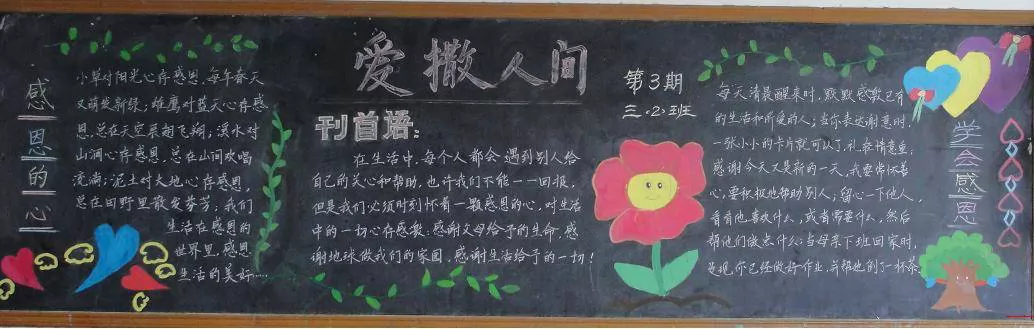 感恩的心
小草对阳光心存感恩，每年春天
又萌发新绿；雄鹰对蓝天心存感
恩，总在天空展翅飞翔；溪水对
山涧心存感恩，总在山间欢唱
流淌；泥土对大地心存感恩，
总在田野里散发芬芳；我们
生活在感恩的
世界里，感恩
生活的美好……
爱撒人间
刊首语：
在生活中，每个人都会遇到别人给
自己的关心和帮助，也许我们不能一一回报，
但是我们必须时刻怀有一颗感恩的心，对生活
中的一切心存感激：感谢父母给予的生命，感
谢地球做我们的家园，感谢生活给予的一切！
第3期
三.(2)班
每天清晨醒来时，默默感激已有
的生活和所爱的人；当你表达谢意时，
一张小小的卡片就可以了，礼轻情意重；
感谢今天又是新的一天，我要常怀善
心，要积极地帮助别人；留心一下他人，
看看他喜欢什么，或者需要什么，然后
帮他们做点什么；当母亲下班回家时，
发现，你已经做好作业，并帮她倒了一杯茶
学会感恩